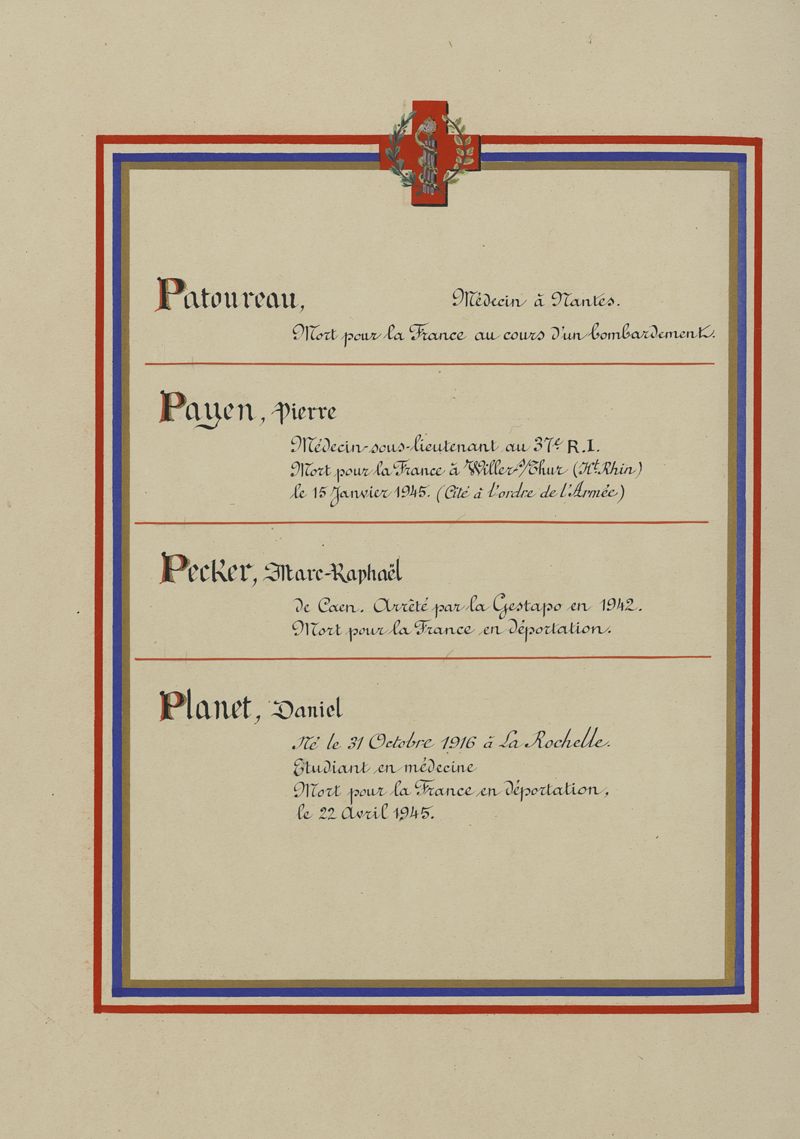 Patoureau, Médecin à Nantes.
Mort pour la France au cours d'un bombardement.
Payen, Pierre
Médecin-sous-lieutenant au 37e R.I.
Mort pour la France à Willer s/Thur (Ht Rhin)
le 15 Janvier 1945. (Cité à l'ordre de l'Armée)
Pecker, Marc-Raphaël
de Caen. Arrêté par la Gestapo en 1942.
Mort pour la France en déportation.
Planet, Daniel
Né le 31 Octobre 1916 à La Rochelle.
Etudiant en médecine
Mort pour la France en déportation,
le 22 Avril 1945.